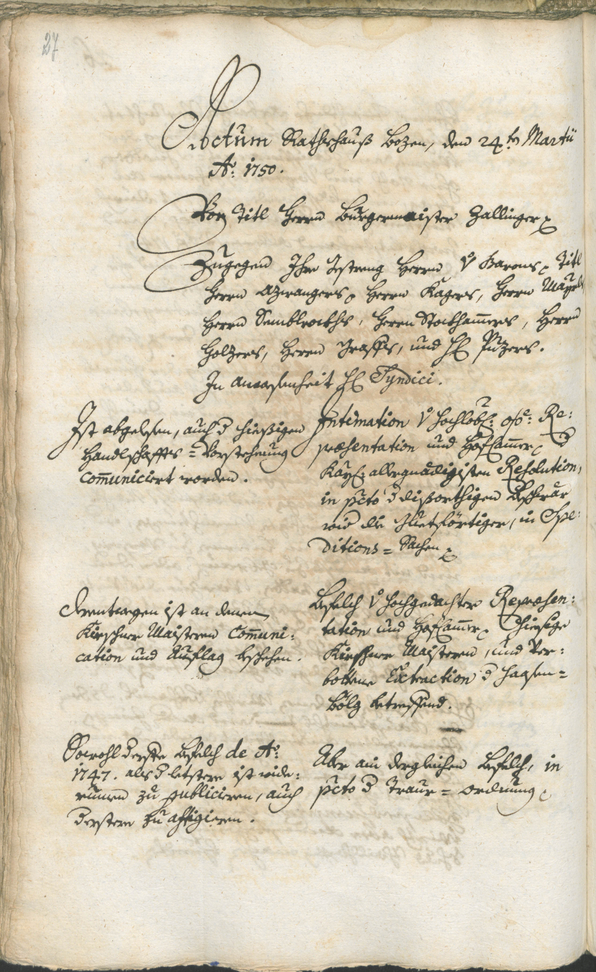 27
Actum Rathshauß Bozen, den 24ten Martii
Ao: 1750.
Von Titl Herrn Burgermaister Zallinger
Zugegen Ihro Gestreng Herrn Titl
Herrn Azwangers, Herrn Kagers, Herrn
Herrn Sembleröckhs, Herrn Stockhamers, Herrn
Holzers, Herrn Grasses, und H: Puzers.
In anwesenheit H: Syndici.
Ist abgelesen, auch hiesigen
Handlschaffts=Vorstehung
com̅uniciert worden.
Intimation Hochlobl: ofö: Re:
præsentation und Hofcam̅er,
Kays: allergnädigisten Resolution,
in pcto disorthigen
wie die in Spe:
ditions=Sachen
Derentwegen ist an denen
Kürschner Maisteren Com̅uni:
cation und Auflag beschehen.
Befelch Hochgedachter Repræsen:
tation und Hofcam̅er, hiesige
Kürschner Maisteren, und Ver:
bottene Extraction d Haasen=
bölg betreffend.
Sowohl derste Befelch de Ao:
1747. als d letstere ist wide:
rumen zu publicieren, auch
derstere zu affigieren.
Aber ain dergleichen Befelch, in
pcto d Traur=ordnung.